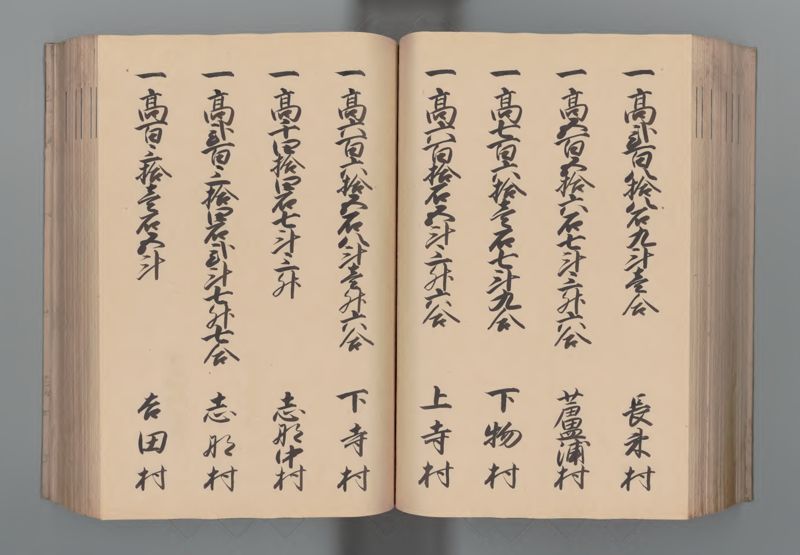 一高弐百八拾八石九斗壱合 長束村
一高五百五拾六石七斗三升六合 蘆浦村
一高七百六拾壱石七斗九合 下物村
一高六百拾石五斗三升六合 上寺村
一高六百六拾五石八斗壱升六合 下寺村
一高千四拾四石七斗三升 志那中村
一高弐百三拾四石弐斗七升七合 志那村
一高百三拾壱石五斗 吉田村